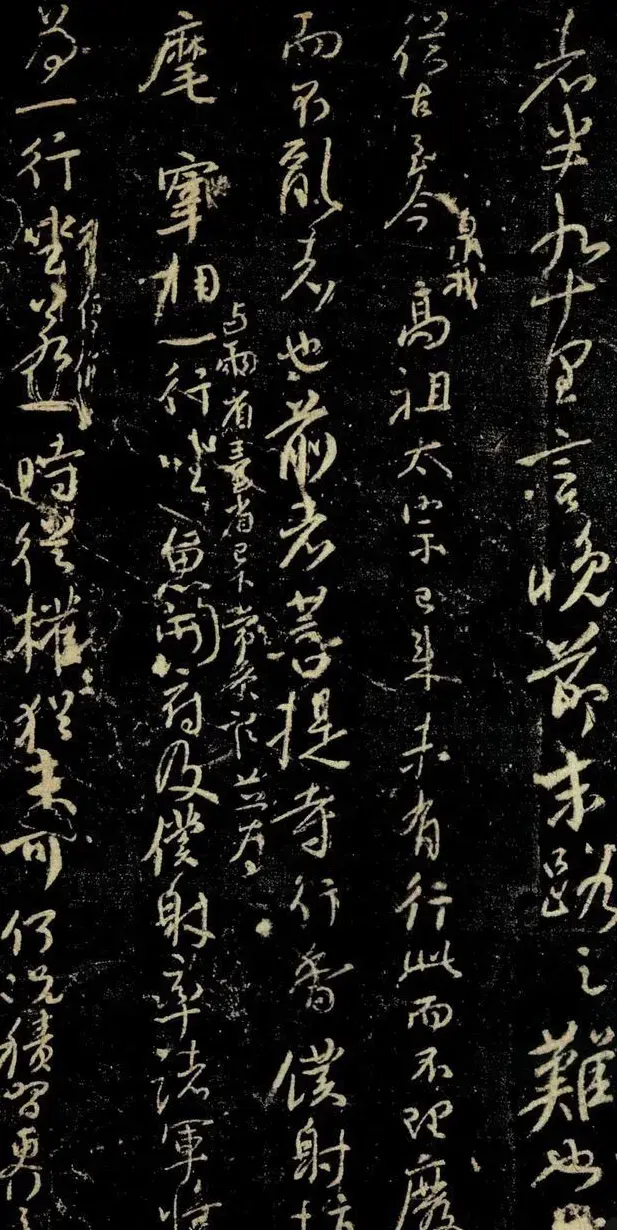 者半九十里言晚節末路之難也
從古至今
泉我
高祖太宗已来未有行此而不理廢
而不亂者也前者菩提寺行香僕射指
麾宰相
与兩省臺省已下常參官並為
一行坐魚開府及僕射率諸軍將
為一行坐
若一時從權猶未可何況積習更行之